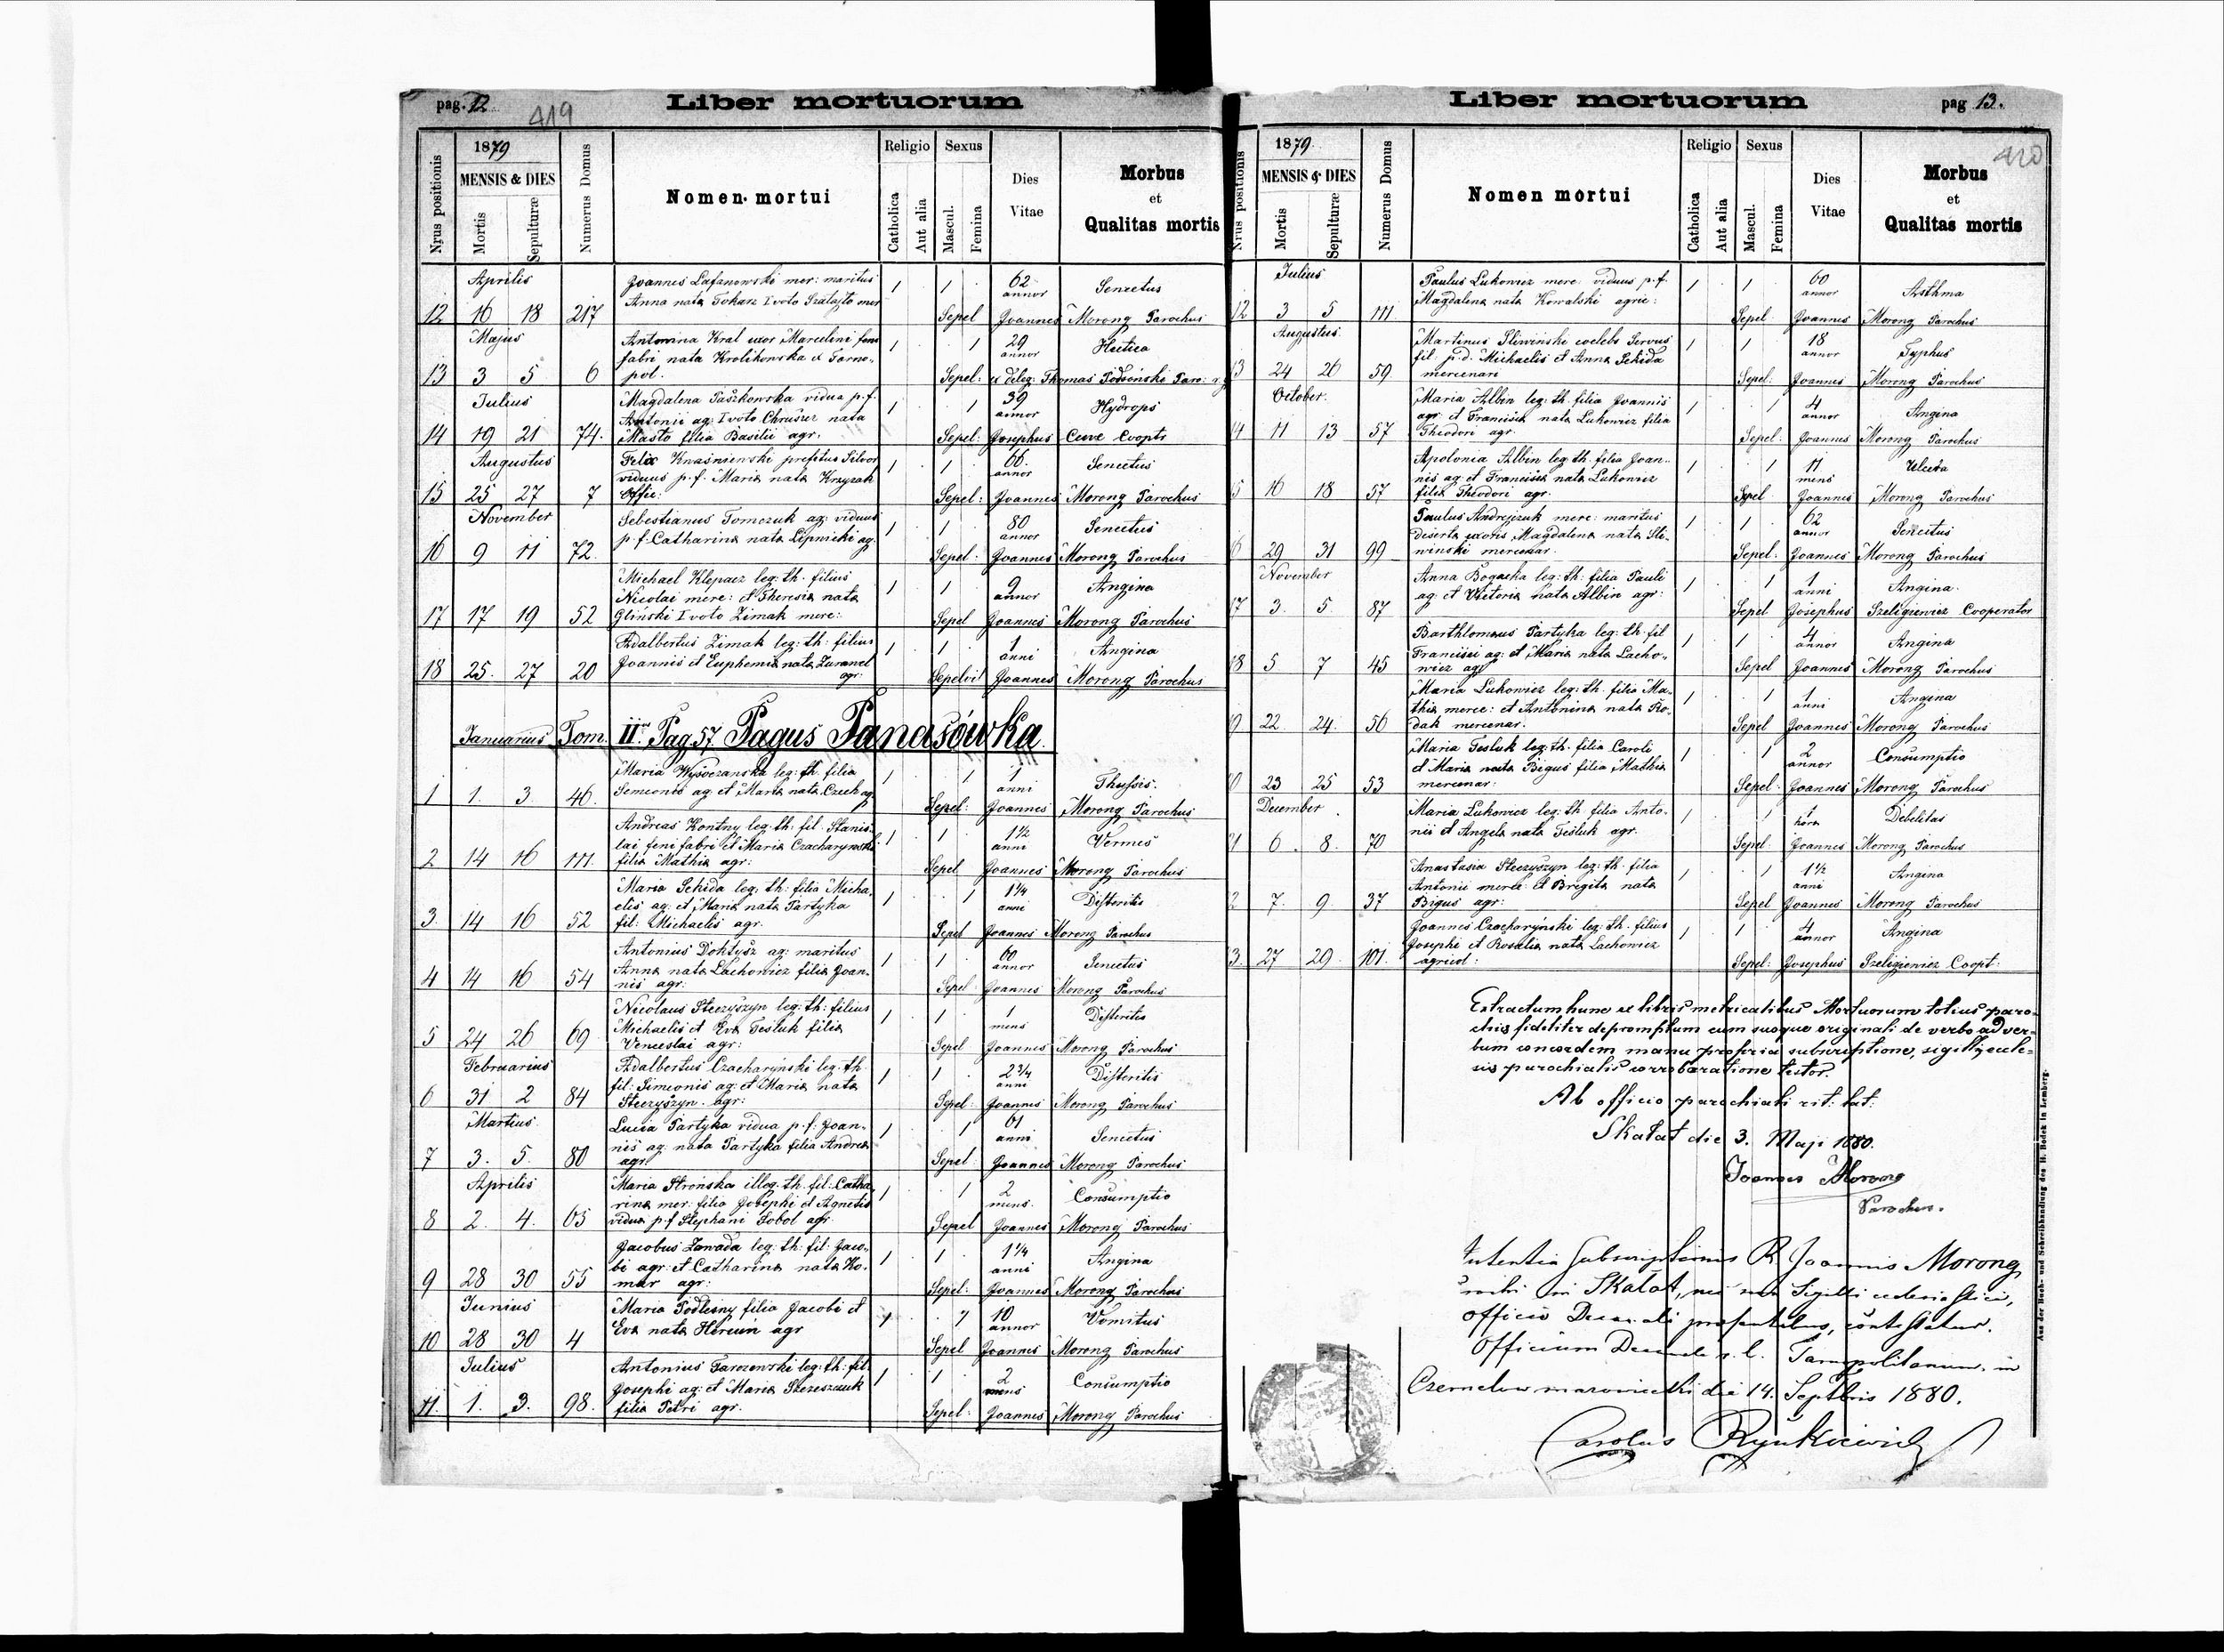 pag. 12
419
Liber mortuorum
Nrus positionis
1879
MENSIS & DIES
Mortis
Sepulturæ
Numerus Domus
Nomen mortui
Religio
Catholica
Aut alia
Sexus
Mascul.
Femina
Dies
Vitae
Morbus
et
Qualitas mortis
Aprilis
Joannes Lafanowski mer: maritus 1 1 62 annor Senectus
Anna nata Tokarz I voto Szalajto mer
12 16 18 217 Sepel Joannes Morong Parochus
Majus
Antonina Kral uxor Marcelini feni 1 1 29 annor Hectica
fabri nata Krolikowska ex Tarno-
13 3 5 6 pol. Sepel: ex deleg: Thomas Podsoński Paro:
Julius
Magdalena Paszkowska vidua p.f. 1 1 39 annor Hydrops
Antonii ag: I voto Chruszcz nata
14 19 21 74. Masto filia Basilii agr. Sepel: Josephus Coopts
Augustus
Felix Knaśniewski prefetus Silvor 1 1 66 annor Senectus
viduus p.f. Maria nata Krzyzak
15 25 27 7 Offic: Sepel: Joannes Morong Parochus
November
Sebestianus Tomczuk ag: viduus 1 1 80 annor Senectus
p.f. Catharina nata Lipnicki ag
16 9 11 72. Sepel: Joannes Morong Parochus
Michael Klepacz leg: th. filius 1 1 9 annor Angina
Nicolai merc: et Theresia nata
17 17 19 52 Gliński I voto Zimak merc: Sepel Joannes Morong Parochus
Adalbertus Zimak leg: th: filius 1 1 1 anni Angina
Joannis et Euphemia nata Zuranel
18 25. 27 20 agr: Sepelvit Joannes Morong Parochus
Januarius Tom. II Pag 57 Pagus Panasówka
Maria Wysoczanska leg: th. filia 1 1 1 anni
Semeonis ag et Maria nata Czech ag
1 1. 3. 46. Sepel: Joannes Morong Parochus
Andreas Kontny leg: th: fil. Stanis- 1 1 1½ anni Vermes
lai feni fabri et Maria Czacharynski
2 14 16 111. filia Mathia agr: Sepel Joannes Morong Parochus
Maria Sekida leg: th: filia Micha- 1 1 1¼ anni Difteritis
elis ag: et Maria nata Partyka
3. 14 16 52 fil: Michaelis agr. Sepel Joannes Morong Parochus
Antonius Doktysz ag: maritus 1 1 60 annor Senectus
Anna nata Lachowicz filia Joan-
4 14 16 54 nis agr: Sepel Joannes Morong Parochus
Nicolaus Steczyszyn leg: th: filius 1 1 1 mens Difteritis
Michaelis et Eva Tesluk filia
5 24 26 69 Venceslai agr: Sepel Joannes Morong Parochus
Februarius
Adalbertus Czacharynski leg: th 1 1 2¾ anni Difteritis
fil: Simeonis ag: et Maria nata
6 31 2 84 Steczyszyn agr: Sepel: Joannes Morong Parochus
Martius.
Lucia Partyka vidua p.f: Joan- 1 1 61 anni Senectus
nis ag: nata Partyka filia Andrea
7 3. 5. 80 agr. Sepel: Joannes Morong Parochus
Aprilis
Maria Strońska illeg. th. fil: Catha 1 1 2 mens. Consumptio
rina mer: filia Josephi et Agnetis
8 2. 4. 65 vidua p f Stephani Sobol agr. Sepel Joannes Morong Parochus
Jacobus Zawada leg: th: fil: Jaco- 1 1 1¼ anni Angina
bi agr: et Catharina nata Ko-
9 28 30 55 mar agr: Sepel: Joannes Morong Parochus
Junius
Maria Podlesny filia Jacobi et 1 1 10 annor Vomitus
Eva nata agr
10 28 30 4 Sepel Joannes Morong Parochus
Julius
Antonius Tarozowski leg: th: fil: 1 1 2 mens Consumptio
Josephi ag: et Maria Szereszczuk
11. 1. 3. 98. filia Petri agr. Sepel: Joannes Morong Parochus
Liber mortuorum
pag 13.
420
Nrus positionis
1879.
MENSIS & DIES
Mortis
Sepulturæ
Numerus Domus
Nomen mortui
Religio
Catholica
Aut alia
Sexus
Mascul.
Femina
Dies
Vitae
Morbus
et
Qualitas mortis
Julius
Paulus Lukowicz merc: viduus p.f. 1 1 60 annor Asthma
Magdalena nata Kowalski agric:
12 3 5 111 Sepel Joannes Morong Parochus
Augustus
Martinus Sliwiński coelebs Servus 1 1 18 annor Typhus
fil: p.d. Michaelis et Anna Sekida
13 24 26 59 mercenari Sepel: Joannes Morong Parochus
October.
Maria Albin leg: th. filia Joannis 1 1 4 annor Angina
agr. et Francisca nata Lukowicz filia
14 11 13 57 Theodori agr. Sepel: Joannes Morong Parochus
Apolonia Albin leg th. filia Joan- 1 1 11 mens Ulcera
nis ag et Francisca nata Lukowicz
5 16 18 57 filia Theodori agr. Sepel Joannes Morong Parochus
Paulus Andrejczuk merc: maritus 1 1 62 annor Senectus
deserta uxoris Magdalena nata Sli-
6 29 31 99 winski mercenar. Sepel: Joannes Morong Parochus
November
Anna Bogacka leg: th: filia Pauli 1 1 1 anni Angina.
ag: et Victoria nata Albin agr:
17 3. 5. 87 Sepel Josephus Szeligiewicz Cooperator
Barthlomaus Partyka leg: th fil 1 1 4 annor Angina
Francisci ag: et Maria nata Lacho-
18 5 7 45 wicz agr Sepel Joannes Morong Parochus
Maria Lukowicz leg: th. filia Ma- 1 1 1 anni Angina
thia merce: et Antonina nata Ro-
9 22 24. 56 dak mercenar. Sepel Joannes Morong Parochus
Maria Tesluk leg: th. filia Caroli 1 1 2 annor Consumptio
et Maria nata Bigus filia Mathia
0 23 25 53 mercenar: Sepel: Joannes Morong Parochus
December
Maria Lukowicz leg: th. filia Anto- 1 1 1 hora Debelitas
nii et Angela nata Tesluk agr.
1 6. 8. 70 Sepel: Joannes Morong Parochus
Anastasia Steczyszyn leg: th. filia 1 1 1½ anni Angina
Antonii merce: et Bregita nata
2 7. 9. 37 Bigus agr: Sepel Joannes Morong Parochus
Joannes Czacharyński leg: th. filius 1 1 4 annor Angina
Josephi et Rosalia nata Lachowicz
3. 27 29. 101. agricol: Sepel: Josephus Szeligiewicz Coopt:
Extractum hunc ex libris metricalibus Mortuorum totius paro-
chia fideliter depromptum cum suoque originali de verbo ad ver-
bum concordem manu propria subscriptione, sigilly eccle-
sia parochialis corroboratione testor.
Ab officio parochiali rit: lat:
Skałat die 3. Maji 1880.
Joannes Morong
Parochus.
Subscriptionis R. Joannis Morong
in Skałat, Sigilli ecclesiastici,
officio Decanali praesentibus, contestatur.
Officium Decanale r. l. Tarnopolitanum, in
Czernelow mazowiecki die 14. Septbris 1880.
Carolus
Aus der Buch- und Schreibhandlung des H. Bodek in Lemberg.